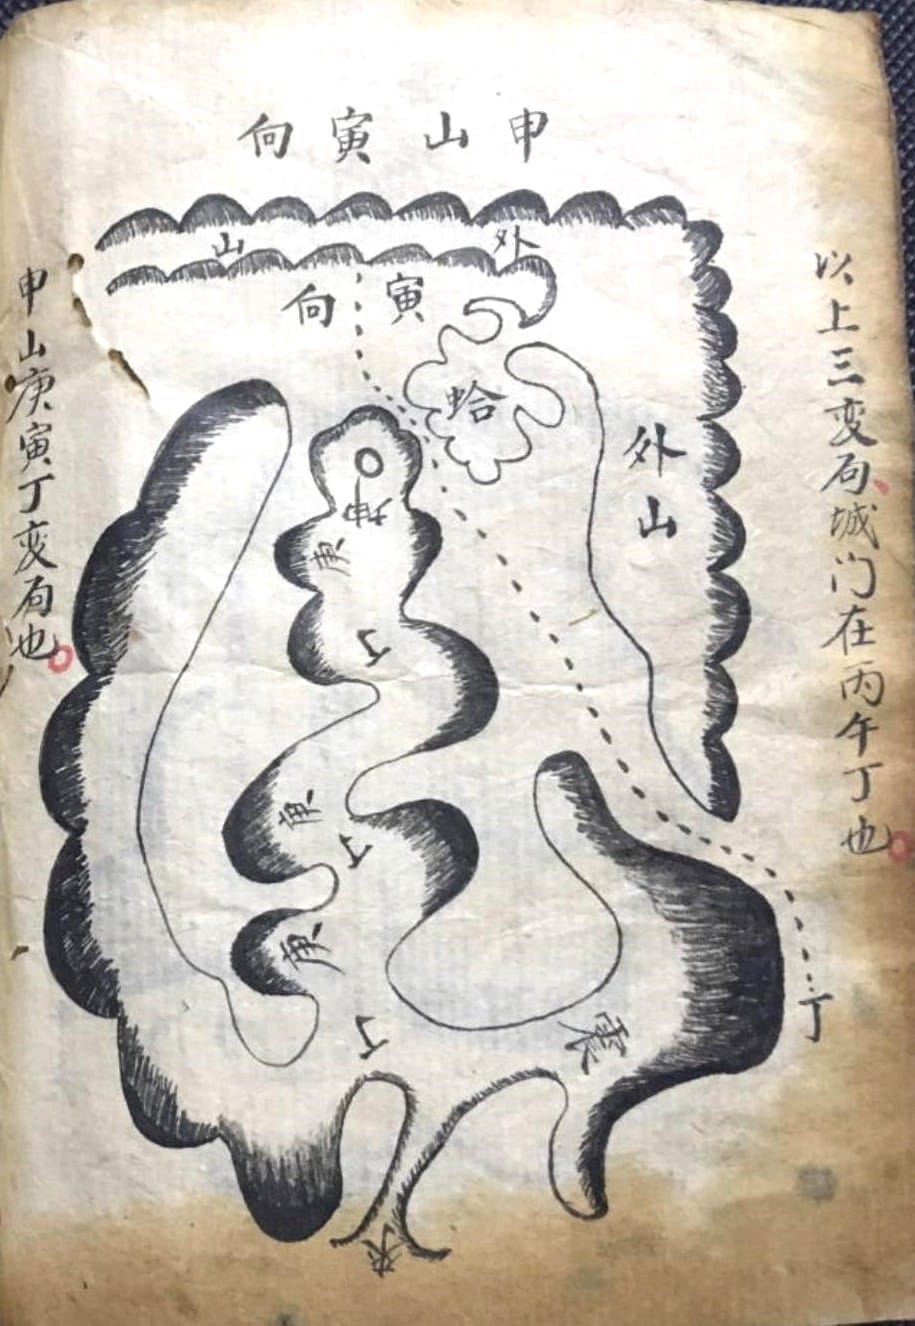 申山寅向
以上三变局城门在丙午丁也
外山
寅向
蛤
外山
坤
庚
丁
庚
丁
庚
丁
丁
来
申山庚寅丁变局也